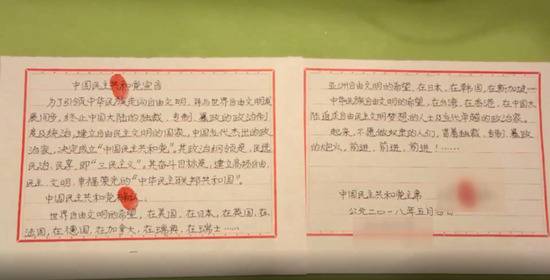 中国民主共和党宣言
为了引领中华民族走向自由文明，并与世界自由文明发
展同步，终止中国大陆的独裁，专制，暴政的政治制
度及统治，建立自由民主文明的国家，中国当代杰出的政治
家，决定成立“中国民主共和党”。其政治纲领是，民选
民治，民享，即“三民主义”。其奋斗目标是，建立高扬自由，
民主，文明，幸福荣光的“中华民主联邦共和国”。
中国民主共和党
世界自由文明的希望，在美国，在日本，在英国，在
法国，在德国，在加拿大，在瑞典，在瑞士……
亚洲自由文明的希望，在日本，在韩国，在新加坡……
中华民族自由文明的希望，在台湾，在香港，在中国大
陆追求自由民主文明梦想的人士及当代卓越的政治家。
起来，不愿做奴隶的人们，冒着独裁，专制，暴政
的炮火。前进，前进，前进！……
中国民主共和党主席
公元二〇一八年五月